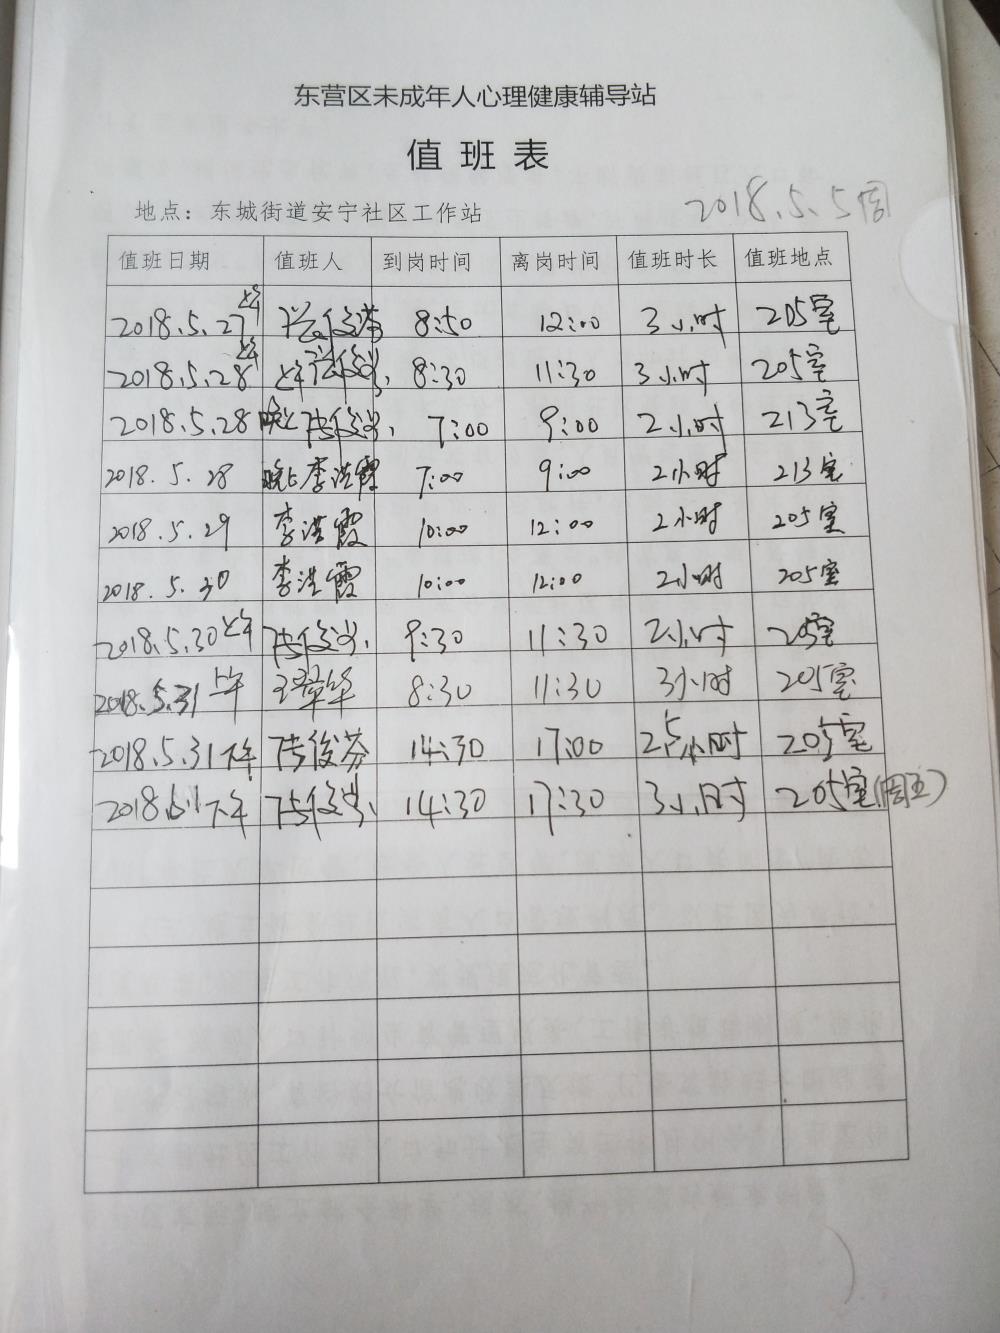 东营区未成年人心理健康辅导站
值班表
地点：东城街道安宁社区工作站
2018.5.5周
值班日期 值班人 到岗时间 离岗时间 值班时长 值班地点
2018.5.27上午 8:50 12:00 3小时 205室
2018.5.28上午 8:30 11:30 3小时 205室
2018.5.28晚上 7:00 9:00 2小时 213室
2018.5.28 晚上 李洪霞 7:00 9:00 2小时 213室
2018.5.29 李洪霞 10:00 12:00 2小时 205室
2018.5.30 李洪霞 10:00 12:00 2小时 205室
2018.5.30上午 9:30 11:30 2小时 205室
2018.5.31上午 8:30 11:30 3小时 205室
2018.5.31下午 14:30 17:00 2.5小时 205室
2018.6.1下午 14:30 17:30 3小时 205室(周五)